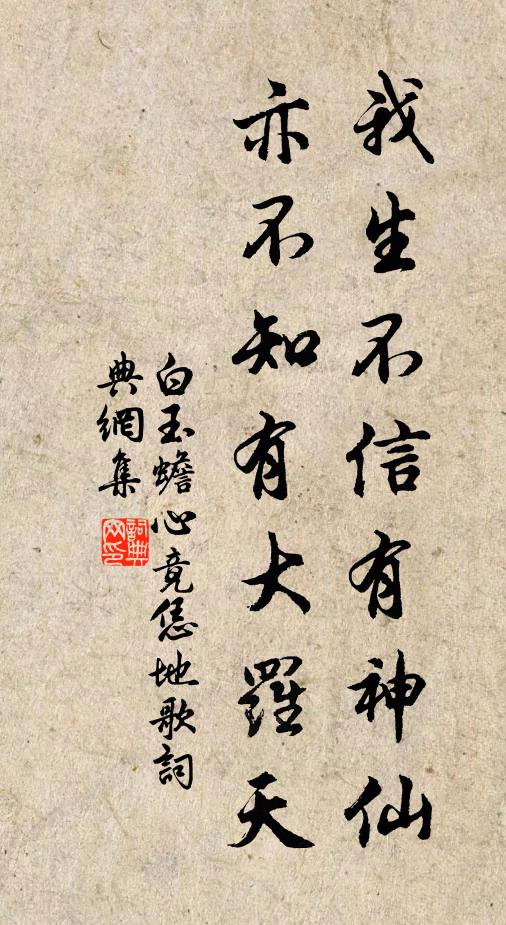 我生不信有神仙
亦不知有大羅天
白玉蟾心竟恁地歌詞
典網集
詞典
网印